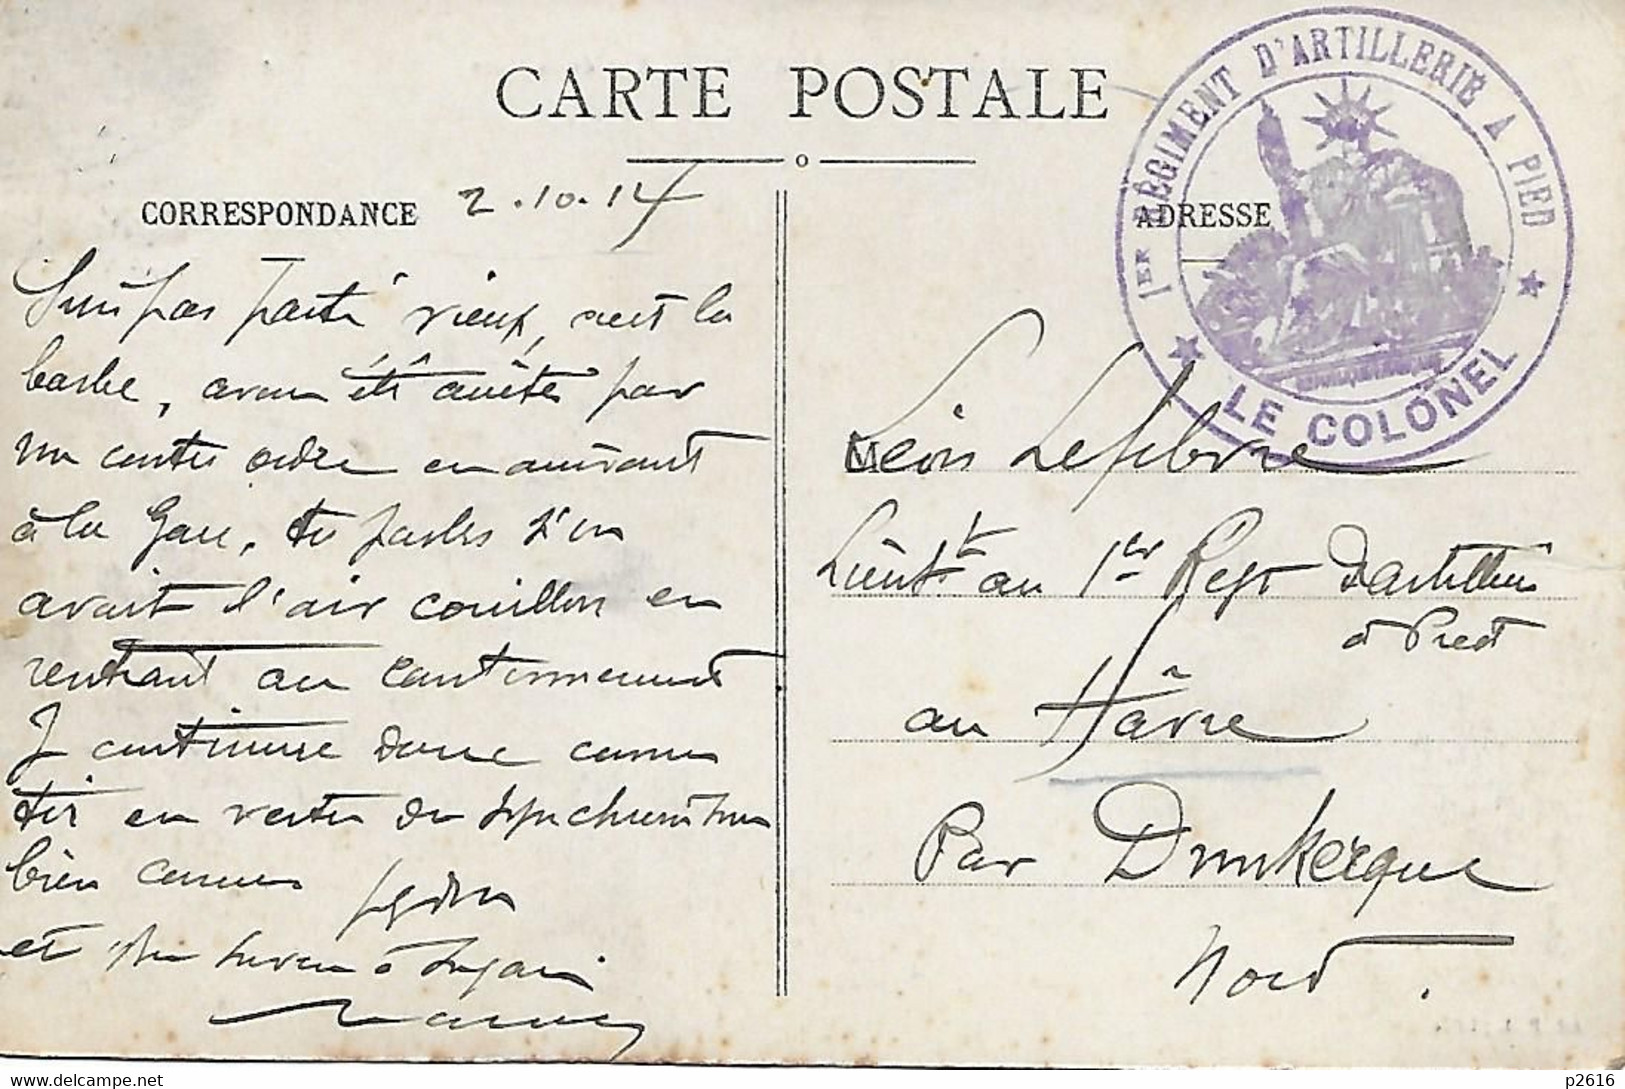 CARTE POSTALE
1ER RÉGIMENT D'ARTILLERIE A PIED
★ LE COLONEL ★
CORRESPONDANCE 2.10.14
ADRESSE
Suis pas parti vieux, c'est la
barbe, avons été arrêtés par
un contre ordre en arrivant
à la Gare, tu parles s'on
avait l'air couillons en
rentrant au cantonnement
Je continue donc comme
bien connu
et
Léon Lefebvre
Lieut.t au 1er Regt D'artillerie
à Pied
au Hâvre
Par Dunkerque
Nord.
delcampe.net
p2616